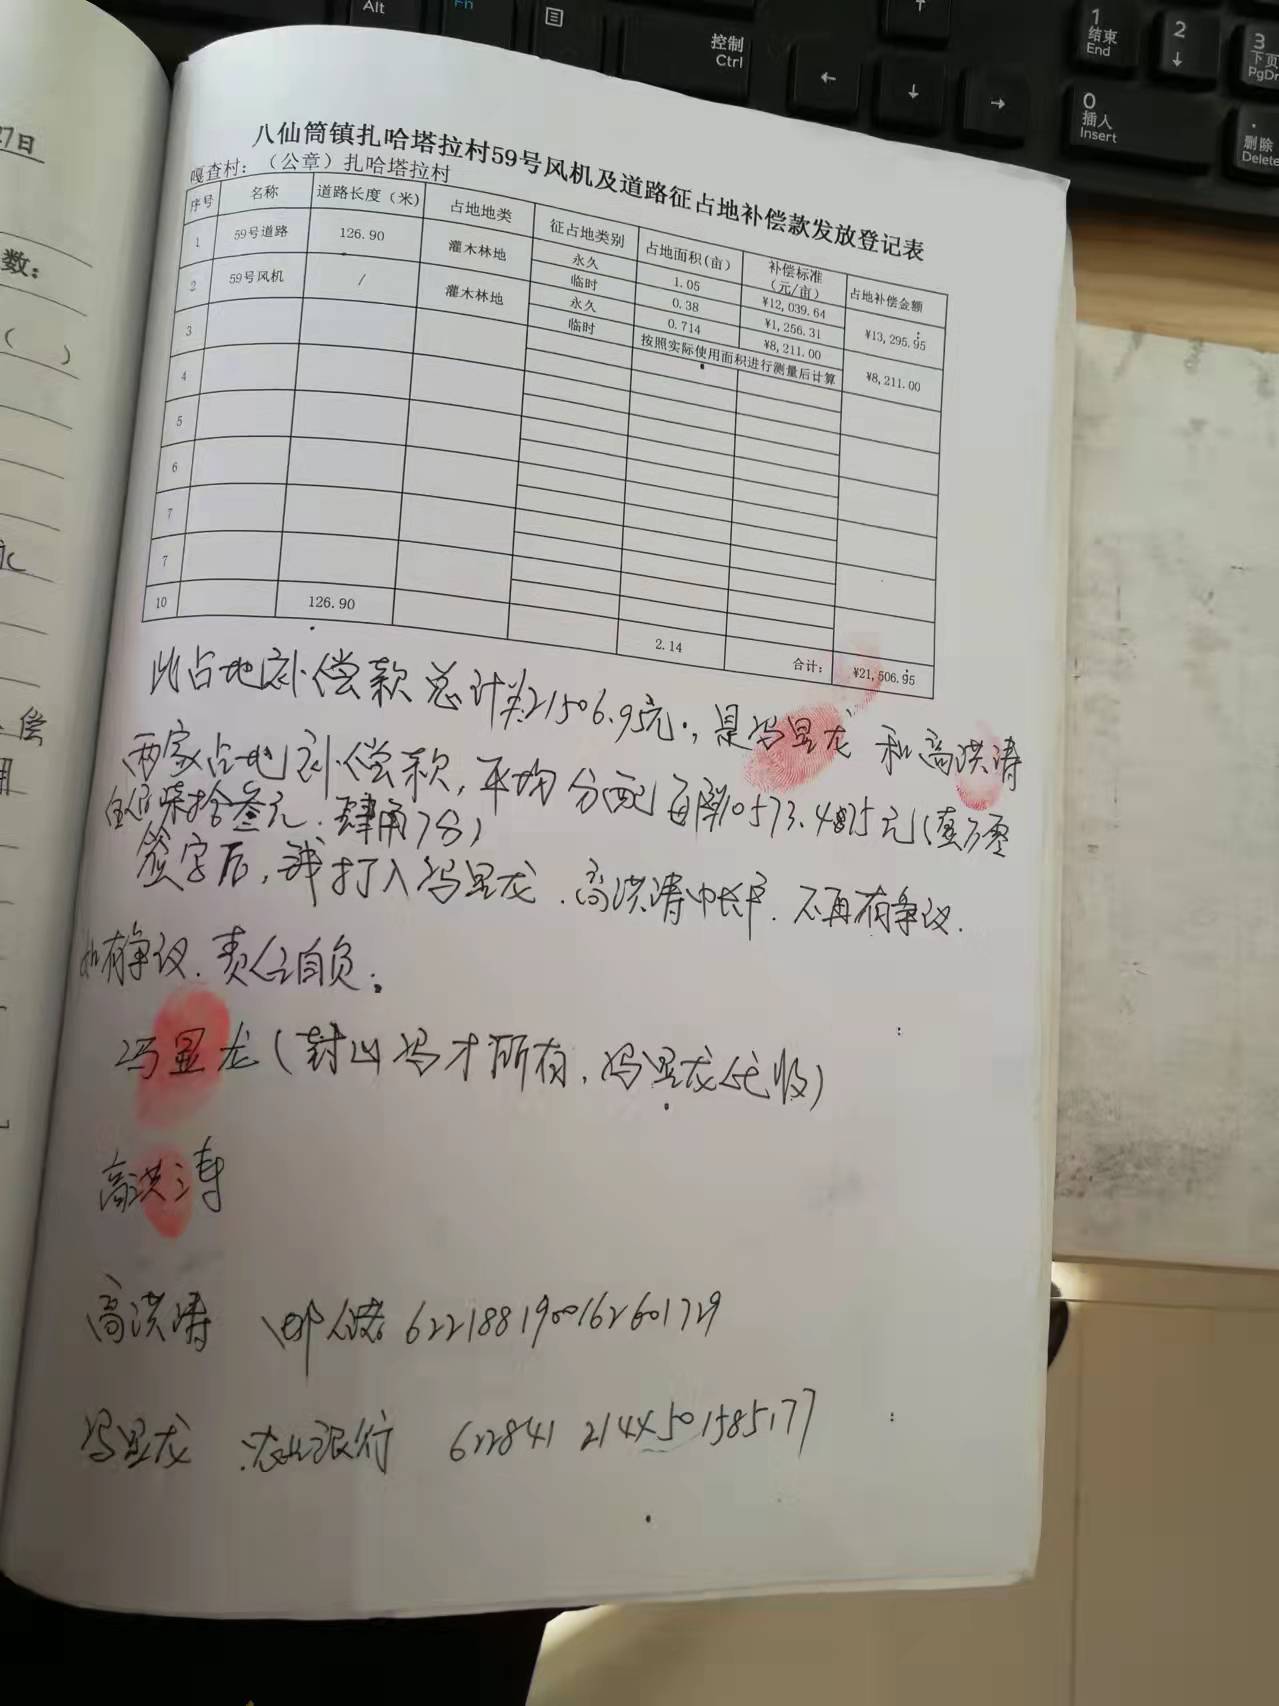 Alt
Fn
控制
Ctrl
1
结束
End
2
3
下页
PgDn
0
插入
Insert
删除
Delete
27日
数：
（ ）
偿
用
八仙筒镇扎哈塔拉村59号风机及道路征占地补偿款发放登记表
嘎查村：（公章）扎哈塔拉村
序号 名称 道路长度（米） 占地地类 征占地类别 占地面积(亩) 补偿标准（元/亩） 占地补偿金额
1 59号道路 126.90 灌木林地 永久 1.05 ¥12,039.64 ¥13,295.95
临时 0.38 ¥1,256.31
2 59号风机 / 灌木林地 永久 0.714 ¥8,211.00 ¥8,211.00
临时 按照实际使用面积进行测量后计算
3
4
5
6
7
7
10 126.90 2.14 合计： ¥21,506.95
此占地补偿款总计¥21506.95元.，是冯显龙 和高洪涛
两家占地补偿款，平均分配
签字后，我打入冯显龙．高洪涛 ．不再有争议．
如有争议．责任自负。
冯显龙（ 冯才所有．冯显龙代收）
高洪涛
高洪涛 邮储 6221881900162601729
冯显龙 农业银行 622841 2144501585177